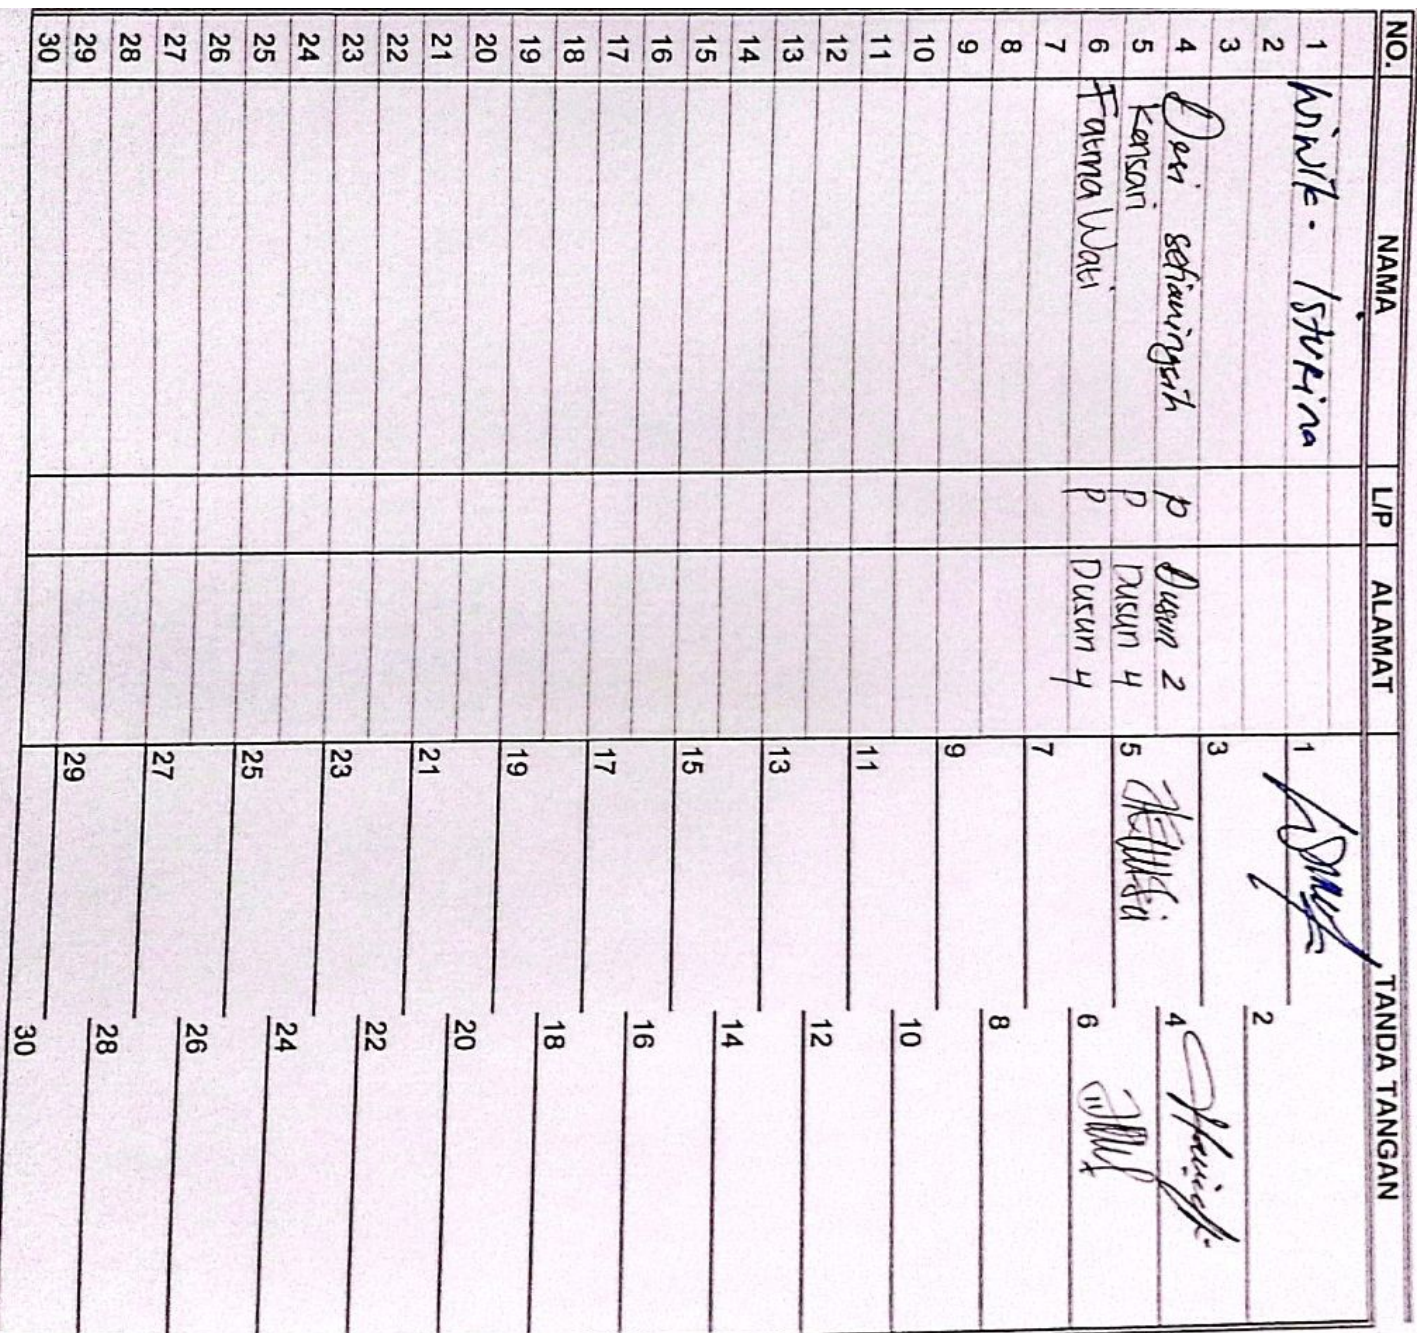 NO. NAMA L/P ALAMAT TANDA TANGAN
1 WiWik. Isturina 1
2 2
3 3
4 Desi setianingsih P Dusun 2 4
5 Kensari P Dusun 4 5
6 Fatma Wati P Dusun 4 6
7 7
8 8
9 9
10 10
11 11
12 12
13 13
14 14
15 15
16 16
17 17
18 18
19 19
20 20
21 21
22 22
23 23
24 24
25 25
26 26
27 27
28 28
29 29
30 30